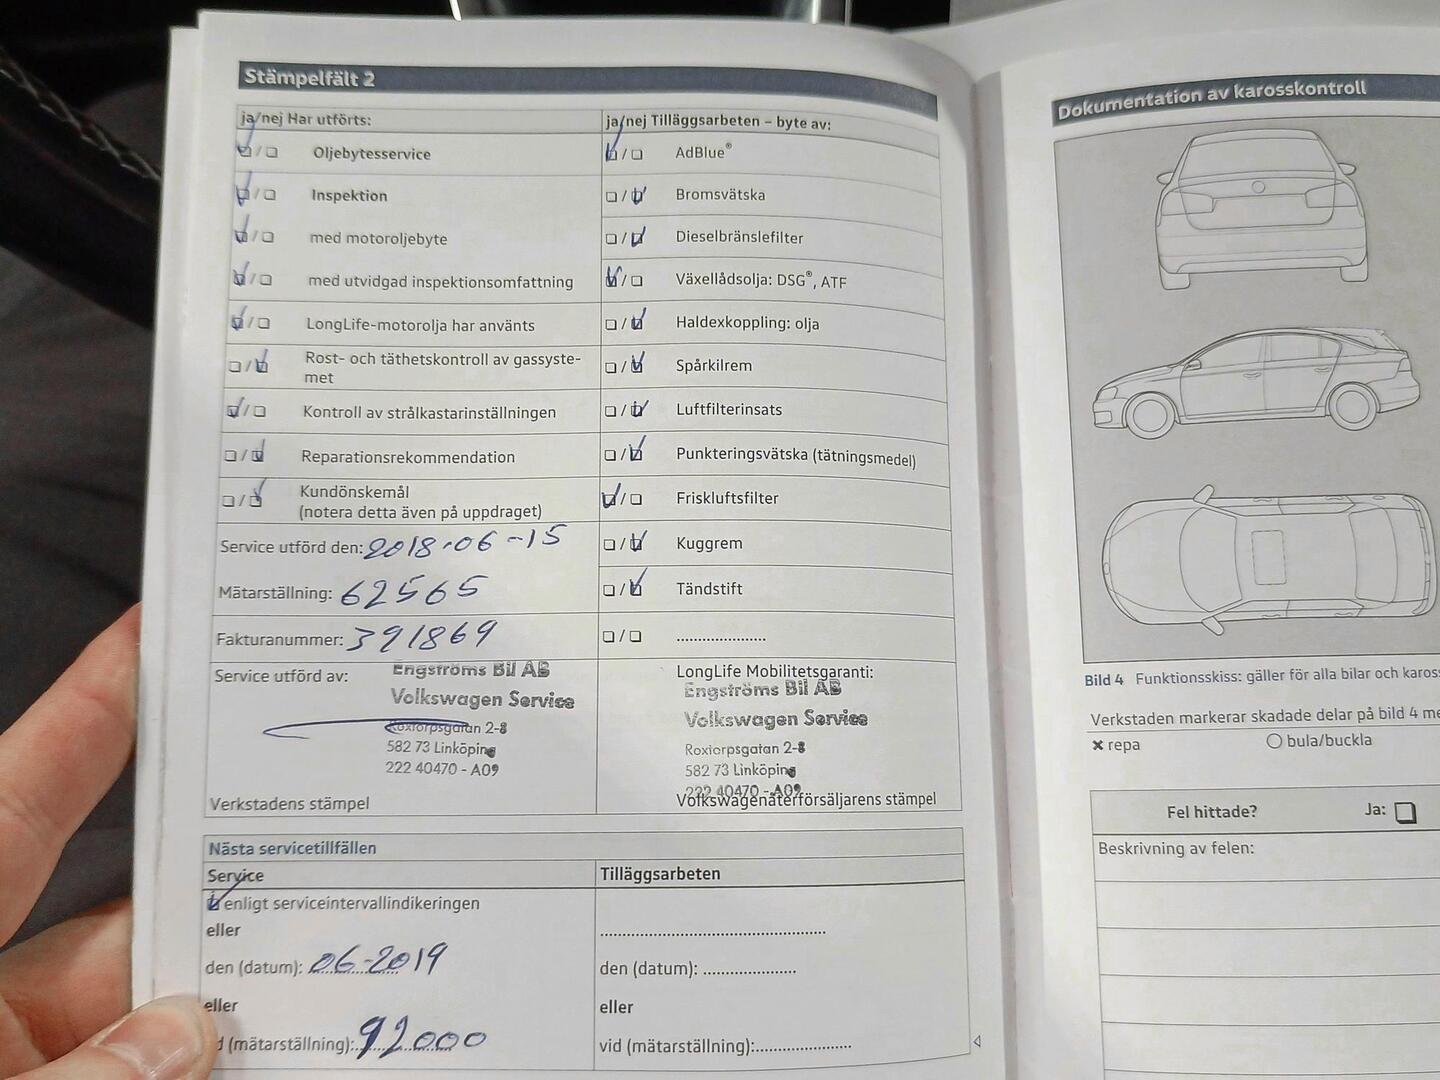 Stämpelfält 2
ja/nej Har utförts:
Oljebytesservice
Inspektion
med motoroljebyte
med utvidgad inspektionsomfattning
LongLife-motorolja har använts
Rost- och täthetskontroll av gassyste-
met
Kontroll av strålkastarinställningen
Reparationsrekommendation
Kundönskemål
(notera detta även på uppdraget)
Service utförd den: 2018-06-15
Mätarställning: 62565
Fakturanummer: 391869
Service utförd av:
Engströms Bil AB
Volkswagen Service
Roxtorpsgatan 2-8
582 73 Linköping
222 40470 - A09
Verkstadens stämpel
ja/nej Tilläggsarbeten – byte av:
AdBlue®
Bromsvätska
Dieselbränslefilter
Växellådsolja: DSG®, ATF
Haldexkoppling: olja
Spårkilrem
Luftfilterinsats
Punkteringsvätska (tätningsmedel)
Friskluftsfilter
Kuggrem
Tändstift
....................
LongLife Mobilitetsgaranti:
Engströms Bil AB
Volkswagen Service
Roxtorpsgatan 2-8
582 73 Linköping
222 40470 - A09
Volkswagenåterförsäljarens stämpel
Nästa servicetillfällen
Service
enligt serviceintervallindikeringen
eller
den (datum): 06-2019
eller
(mätarställning): 92000
Tilläggsarbeten
den (datum): .....................
eller
vid (mätarställning):.....................
Dokumentation av karosskontroll
Bild 4 Funktionsskiss: gäller för alla bilar och kaross
Verkstaden markerar skadade delar på bild 4 me
× repa
○ bula/buckla
Fel hittade?
Ja:
Beskrivning av felen: